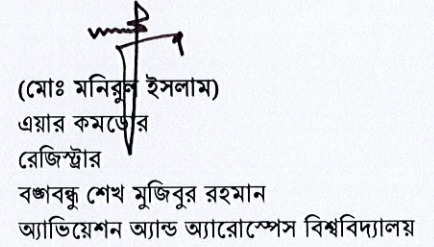 (মোঃ মনিরুল ইসলাম)
এয়ার কমডোর
রেজিস্ট্রার
বঙ্গবন্ধু শেখ মুজিবুর রহমান
অ্যাভিয়েশন অ্যান্ড অ্যারোস্পেস বিশ্ববিদ্যালয়